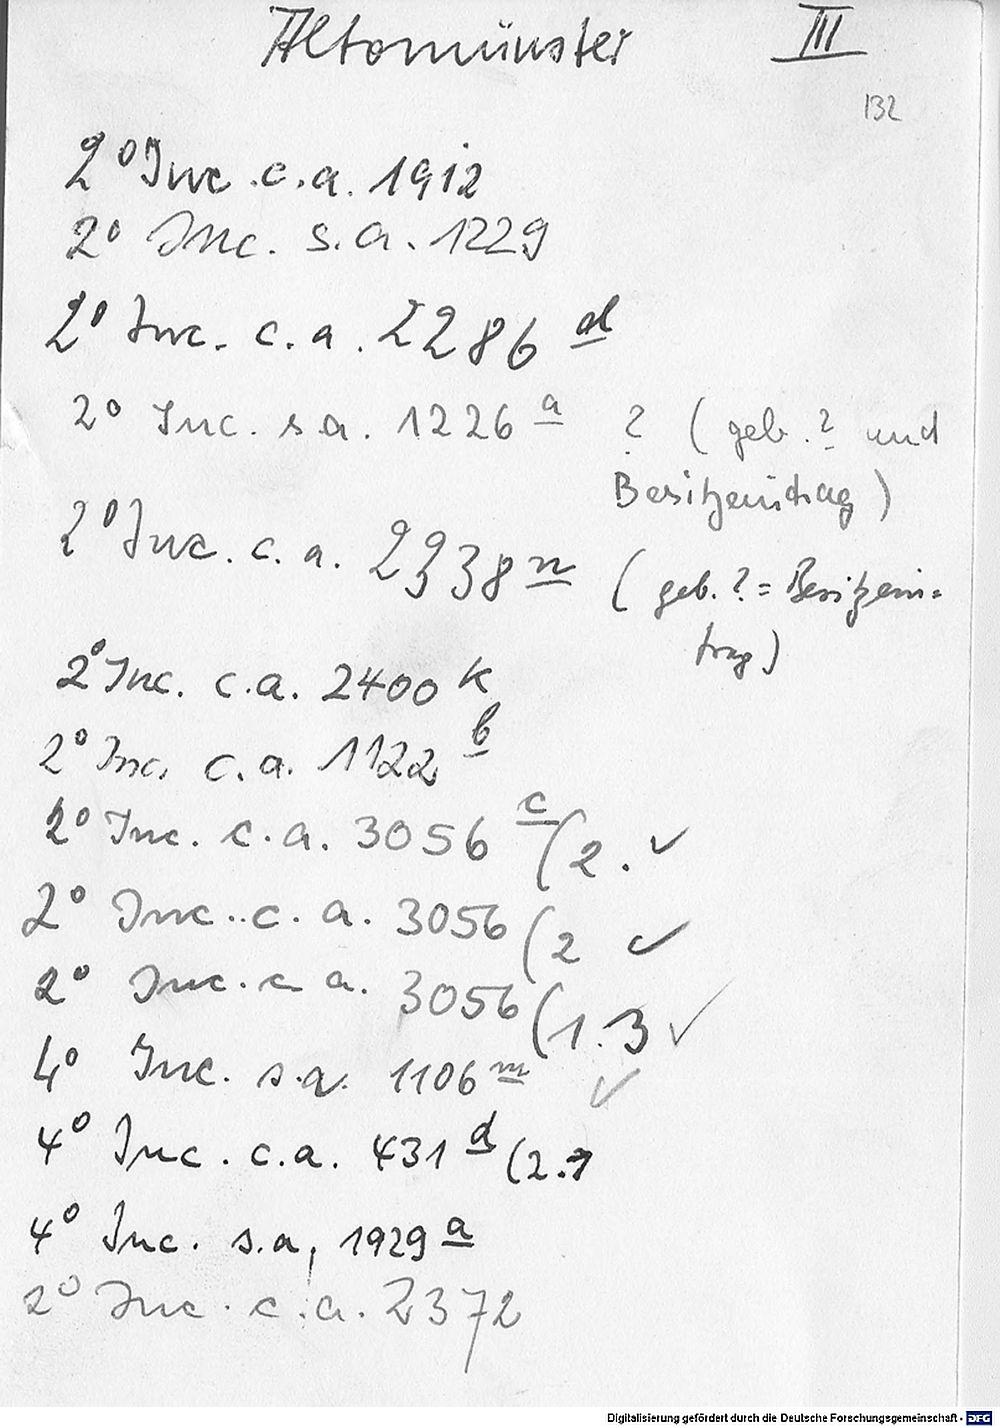 Altomünster III
132
2° Inc. c.a. 1912
2° Inc. s.a. 1229
2° Inc. c.a. 2286 d
2° Inc. s.a. 1226 a ? (geb. ? und
Besitzeintrag)
2° Inc. c.a. 2938 n (geb. ? = Besitzein=
trag)
2° Inc. c.a. 2400 k
2° Inc. c.a. 1122 b
2° Inc. c.a. 3056 c (2. ✓
2° Inc. c.a. 3056 (2 ✓
2° Inc. c a. 3056 (1.3 ✓
4° Inc. s.a. 1106 m ✓
4° Inc. c.a. 431 d (2.
4° Inc. s.a, 1929 a
2° Inc. c.a. 2372
Digitalisierung gefördert durch die Deutsche Forschungsgemeinschaft - DFG